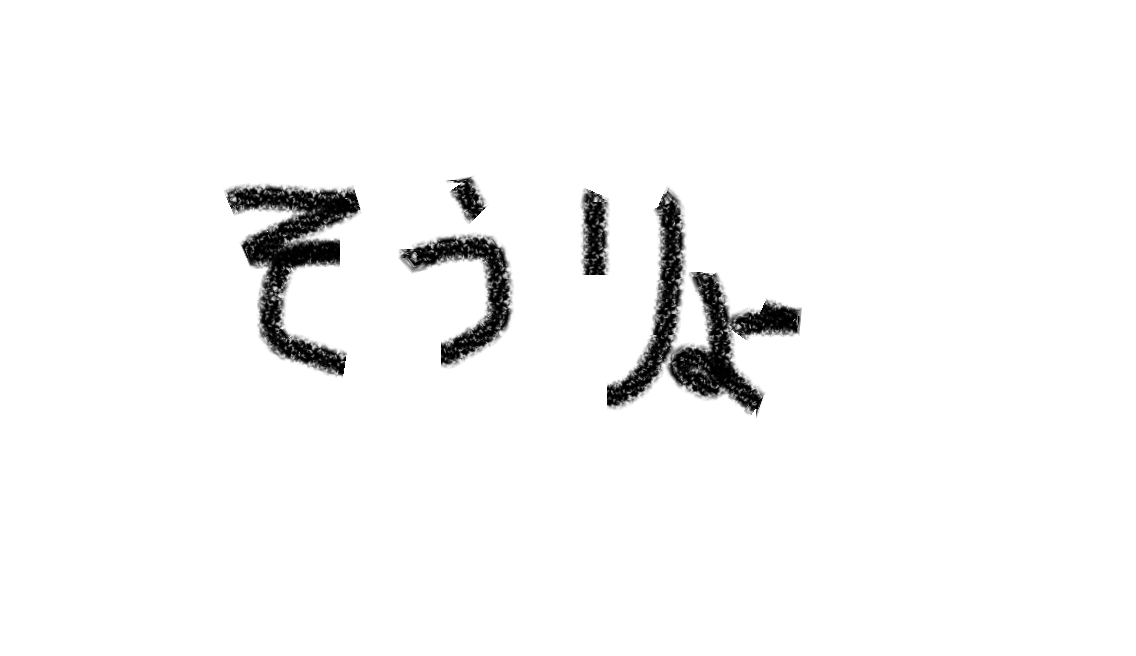 そうりょ